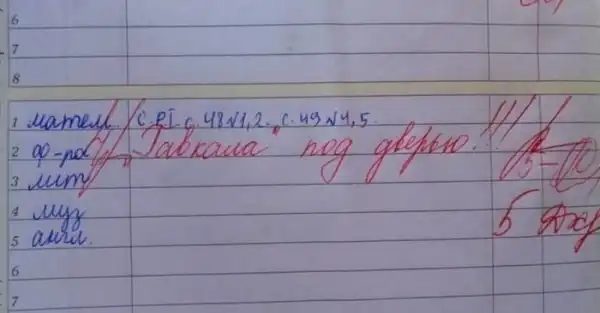 6
7
8
1 матем. с. РТ с. 48 №1,2. с. 49 №4,5.
2 ф-ра "Гавкала" под дверью!!!
3 лит
4 муз 5
5 англ.
6
7